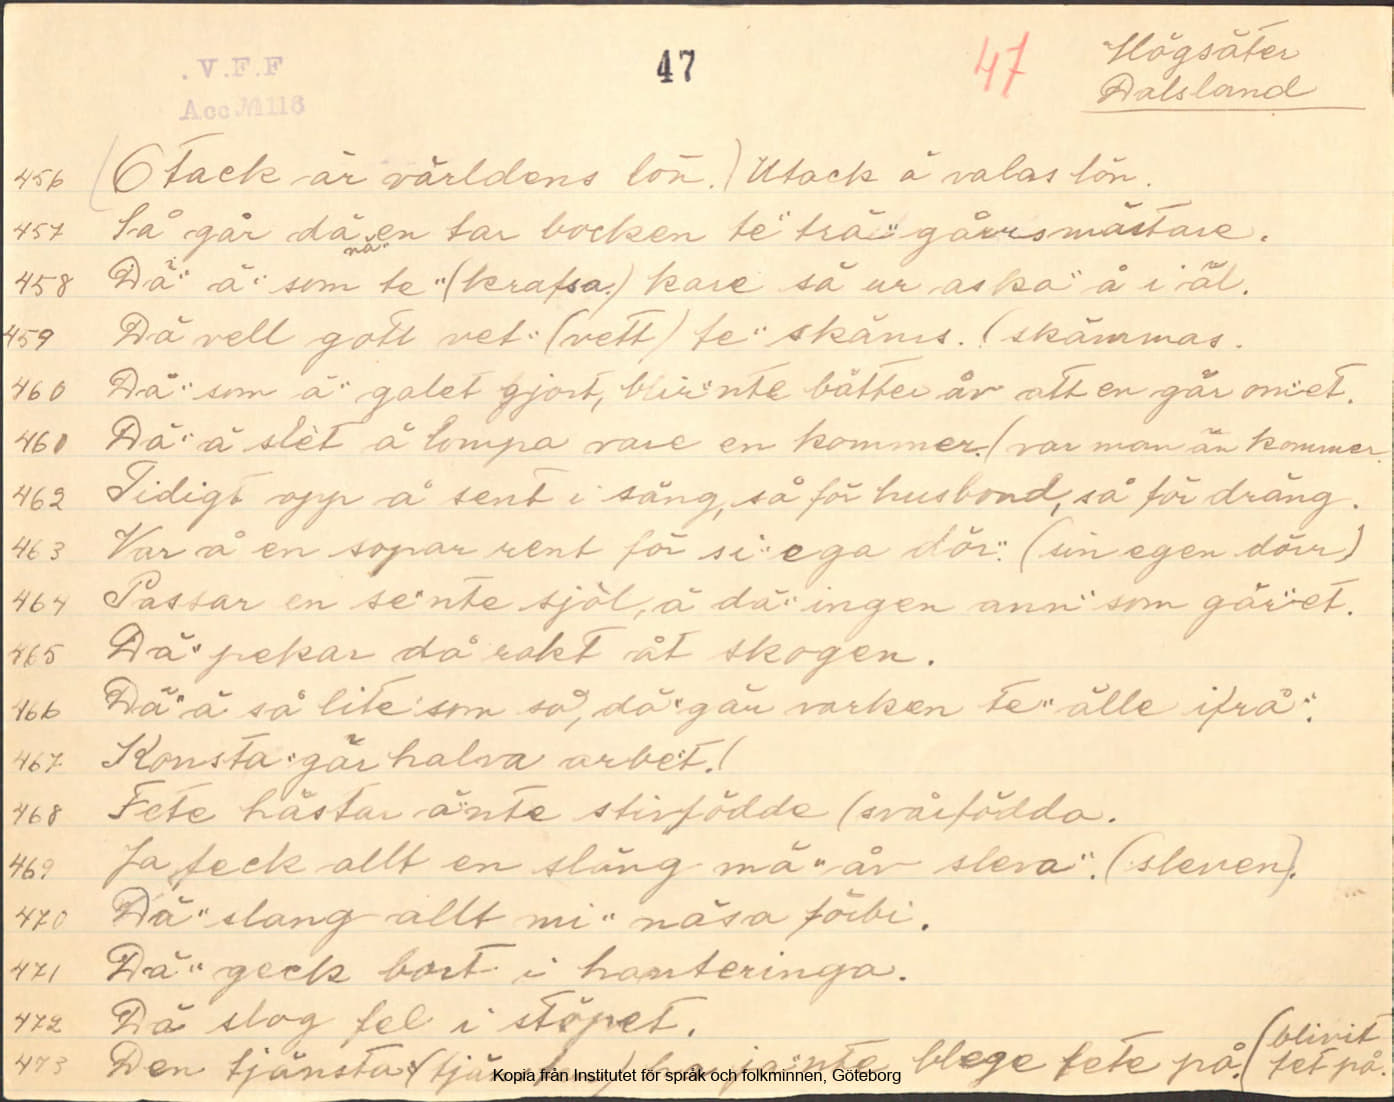 . V.F.F
Acc № 1118
47
47
Högsäter
Dalsland
456 (Otack är världens lön.) Utack ä valas lön.
457 Så går dä en tar bocken te" trä" gårsmästare.
nå"
458 Dä" ä" som te" (krafsa.) kare så ur aska" å i äl.
459 Dä vell gott vet" (vett) te" skäms. (skämmas.
460 Dä" som ä" galet gjort, blir"nte bätter åv att en går om"et.
460 Dä" ä slèt å lompa vare en kommer. (var man än kommer
462 Tidigt opp å sent i säng, så för husbond, så för dräng.
463 Var å en sopar rent för si" ega dör". (sin egen dörr)
464 Passar en se"nte sjöl, ä dä" ingen ann" som gär"et.
465 Dä" pekar då rakt åt skogen.
466 Dä" ä så lite som så, dä" går varken te" älle ifrå".
467 Konsta" gär halva arbet.(
468 Fete hästar ä"nte stirfödde (svårfödda.
469 Ja feck allt en släng mä" åv sleva". (sleven).
470 Dä" slang allt mi" näsa förbi.
471 Dä" geck bort i hanteringa.
472 Dä slog fel i stöpet.
473 Den tjänsta" ja"nte blege fete på. (blivit
fet på.
Kopia från Institutet för språk och folkminnen, Göteborg